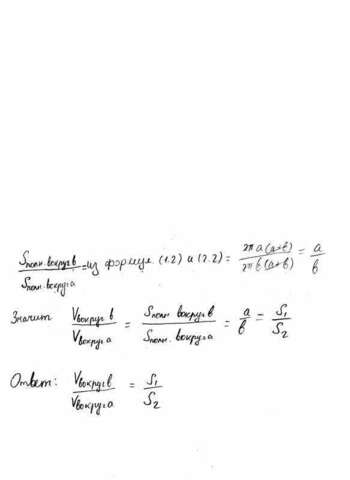 Sполн. вокруг в / Sполн. вокруг а = из формул (1.2) и (2.2) = 2πa(a+в) / 2πв(a+в) = a / в
Значит Vвокруг в / Vвокруг а = Sполн. вокруг в / Sполн. вокруг а = a / в = S₁ / S₂
Ответ: Vвокруг в / Vвокруг а = S₁ / S₂